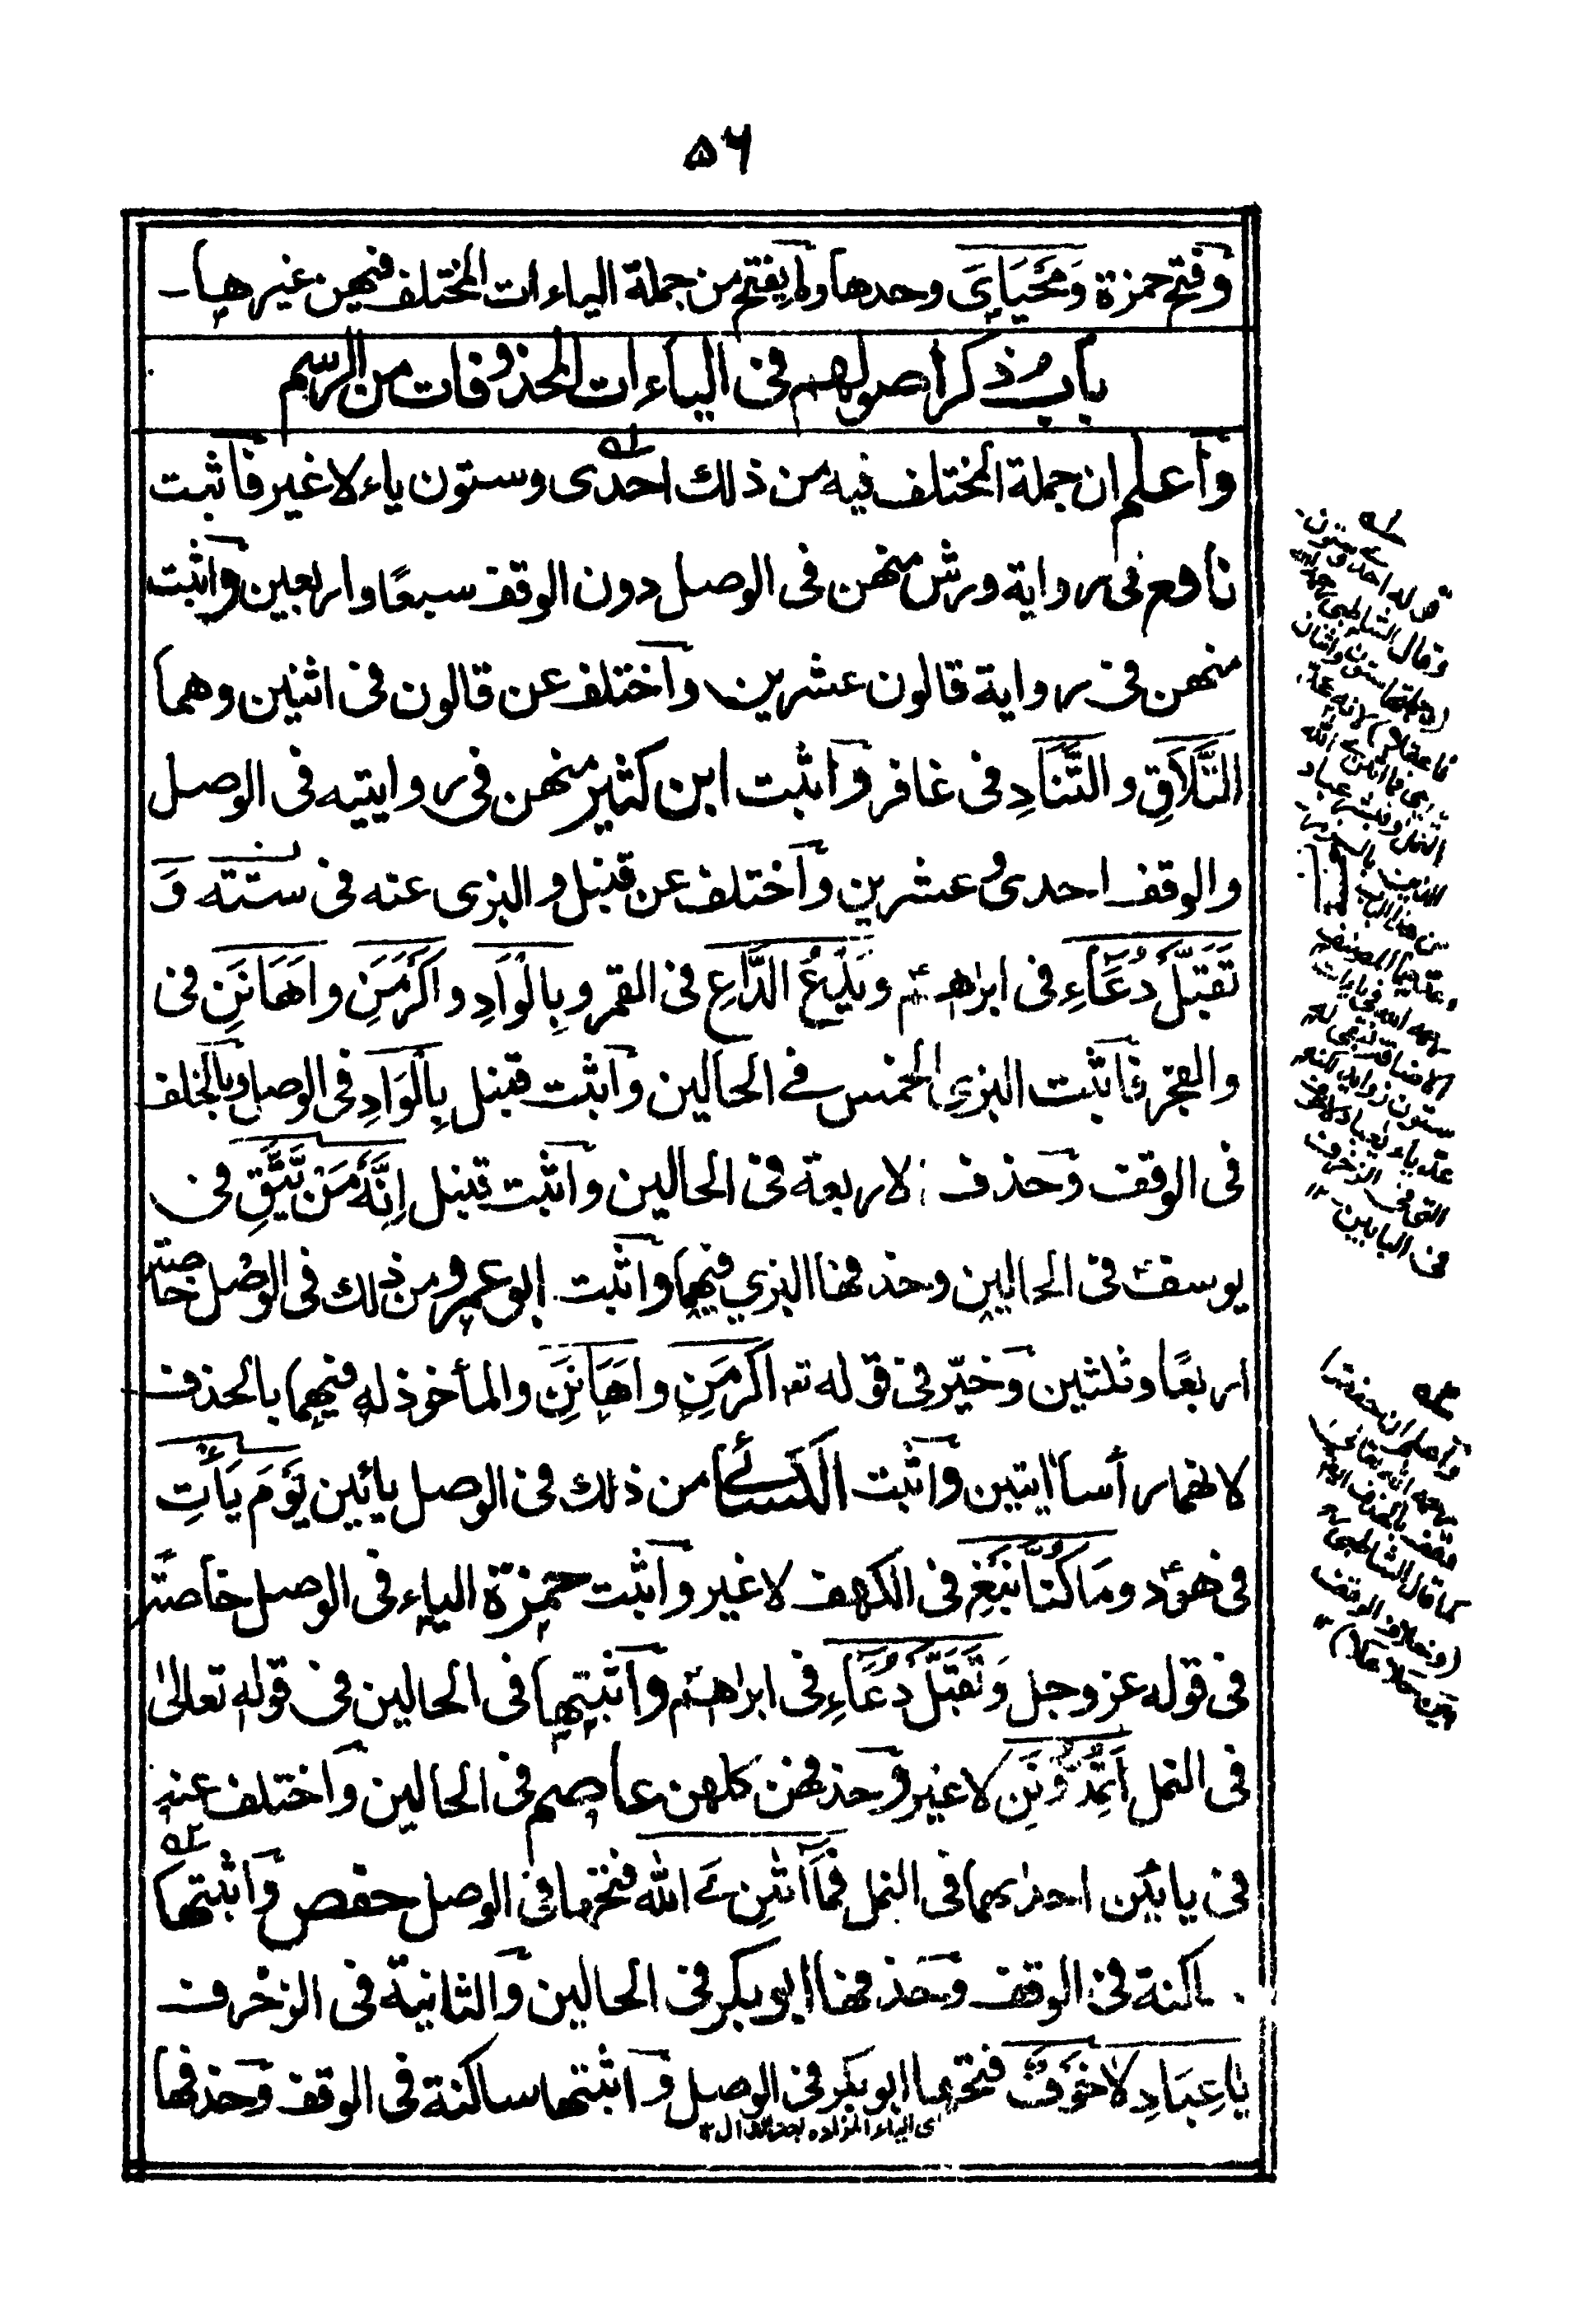 ۵۶
وفتح حمزة وَمَحْيَايَ وحدها ولم يفتح من جملة الياءات المختلف فيهن غيرها-
باب ذكر اصولهم فى الياءات المحذوفات من الرسم
واعلم ان جملة المختلف فيه من ذلك احدى وستون ياء لا غير فاثبت
نافع فى رواية ورش منهن فى الوصل دون الوقف سبعًا واربعين واثبت
منهن فى رواية قالون عشرين واختلف عن قالون فى اثنين وهما
التَّلَاقِ والتَّنَادِ فى غافر واثبت ابن كثير منهن فى روايتيه فى الوصل
والوقف احدى وعشرين واختلف عن قنبل والبزى عنه فى ستته وَ
تَقَبَّلْ دُعَاءِ فى ابرٰهيم ويَدْعُ الدَّاعِ فى القمر وبِالْوَادِ واَكْرَمَنِ واَهَانَنِ فى
والفجر فاثبت البزى الخمس فے الحالين واثبت قنبل بِالْوَادِ فى الوصل وبالخلف
فى الوقف وحذف الاربعة فى الحالين واثبت قنبل اِنَّهٗ مَنْ يَّتَّقِ فى
يوسف فى الحالين وحذفها البزي فيهما واثبت ابو عمرو من ذلك فى الوصل خاصة
اربعًا وثلثين وخيّر فى قوله تعـ اَكْرَمَنِ واَهَانَنِ والمأخوذ له فيهما بالحذف
لانهما رأسا ايتين واثبت الكسائے من ذلك فى الوصل يائين يَوْمَ يَأْتِ
فى هود ومَا كُنَّا نَبْغِ فى الكهف لا غير واثبت حمزة الياء فى الوصل خاصة
فى قوله عز وجل وَتَقَبَّلْ دُعَاءِ فى ابراهيم واثبتها فى الحالين فى قوله تعالىٰ
فى النمل اَتُمِدُّوْنَنِ لا غير وحذفهن كلهن عاصم فى الحالين واختلف عنه
فى يائين احدٰىهما فى النمل فَمَا اٰتٰنِ ےَ الله فتحها فى الوصل حفص واثبتها
ساكنة فى الوقف وحذفها ابو بكر فى الحالين والثانية فى الزخرف
يٰا عِبَادِ لَا خَوْفٌ فتحها ابو بكر فى الوصل واثبتها ساكنة فى الوقف وحذفها
اى الياء الزائدة بعد الدال ۱۲
قوله احدى وستون
وقال الشاطبى
ستون واثنان
فاعقلا) لانه عد
النمل وفبشر عباد
من هذا الباب
وعدهما المصنف
رحمه الله فى ياءات
الاضافة فبقى له
ستون زوايد لكنه
عد ياء يعباد لا خوف
التى فى الزخرف
فى البابين ۱۲
واعلم ان حفصا
رحمه الله تعالى
وقف بالحذف
كما قال الشاطبى
(وخلاف الوقف
بين حلا علا) ۱۲